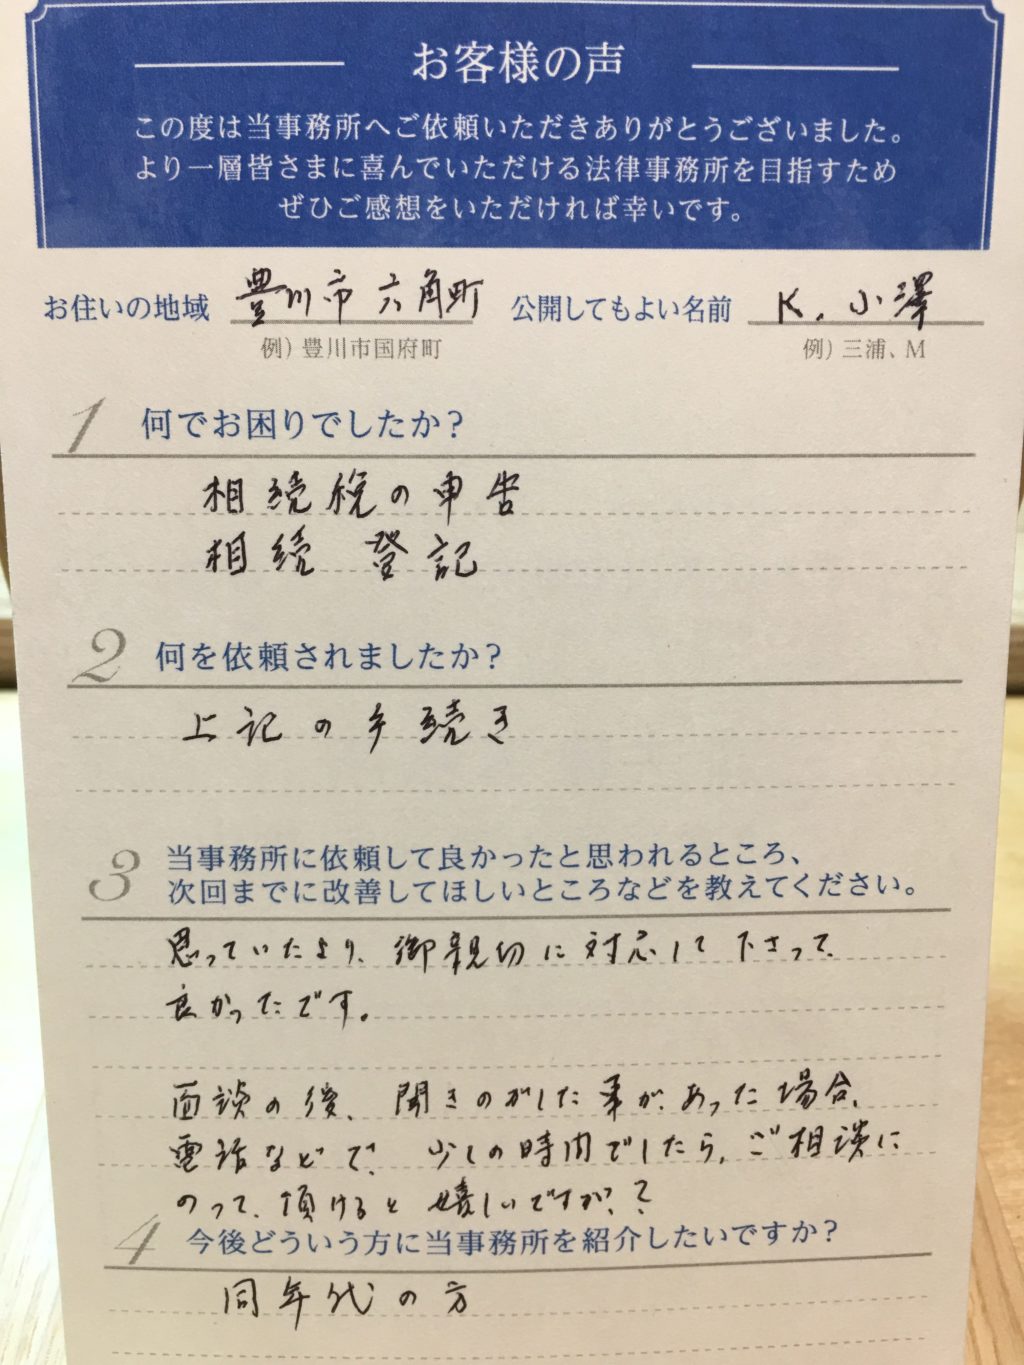 お客様の声
この度は当事務所へご依頼いただきありがとうございました。
より一層皆さまに喜んでいただける法律事務所を目指すため
ぜひご感想をいただければ幸いです。
お住いの地域 豊川市六角町 公開してもよい名前 K. 小澤
例）豊川市国府町 例）三浦、M
1 何でお困りでしたか？
相続税の申告
相続 登記
2 何を依頼されましたか？
上記の手続き
3 当事務所に依頼して良かったと思われるところ、
次回までに改善してほしいところなどを教えてください。
思っていたより、御親切に対応して下さって、
良かったです。
面談の後、聞きのがした事が、あった場合、
電話などで、少しの時間でしたら、ご相談に
のって、頂けると嬉しいですが、？
4 今後どういう方に当事務所を紹介したいですか？
同年代の方